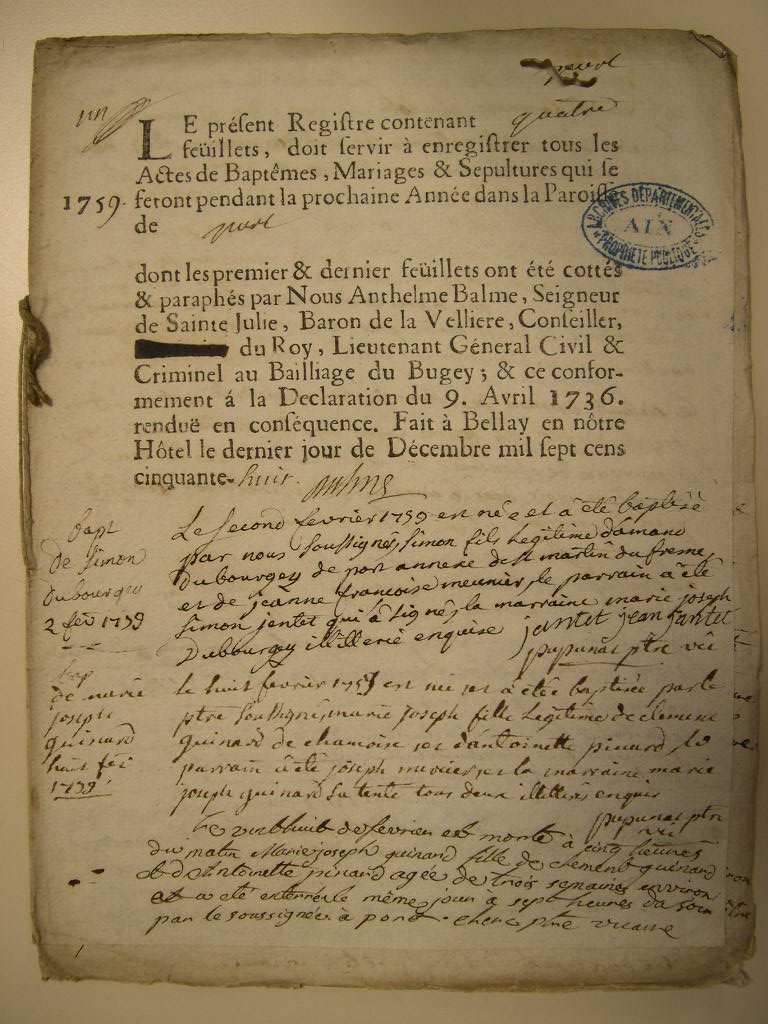 port
quatre
LE présent Registre contenant
feüillets, doit servir à enregistrer tous les
Actes de Baptêmes, Mariages & Sepultures qui se
1759. feront pendant la prochaine Année dans la Paroisse
de port
ARCHIVES DÉPARTEMENTALES
AIN
PROPRIÉTÉ PUBLIQUE
dont les premier & dernier feüillets ont été cottés
& paraphés par Nous Anthelme Balme, Seigneur
de Sainte Julie, Baron de la Velliere, Conseiller,
du Roy, Lieutenant Géneral Civil &
Criminel au Bailliage du Bugey; & ce confor-
mement á la Declaration du 9. Avril 1736.
renduë en conséquence. Fait à Bellay en nôtre
Hôtel le dernier jour de Décembre mil sept cens
cinquante-huit. Balme
bapt
de Simon
Dubourgey
2 fev 1759
Le second fevrier 1759 est né et à été baptisé
par nous soussignés, Simon fils legitime damand
Dubourgey de port annexe de st martin du fresne,
et de jeanne francoise meunier, le parrain à été
Simon jentet qui à signé, la marraine marie joseph
Dubourgey illitterée enquise jantet jean jantet
pupunat ptre vic
bap
de marie
joseph
quinard
huit fev
1759
le huit fevrier 1759 est née et à été baptisée par le
ptre soussigné, marie joseph fille legitime de clement
quinard de chamoise et d'antoinette pinard le
parrain à été joseph mercier et la marraine marie
joseph quinard sa tente tous deux illitteres enquis
pupunat ptre
vic
Le vint huit de fevrier est morte à cinq heures
du matin Marie joseph quinard fille de clement quinard
et d'Antoinette pinard agée de trois semaines environ
et a été enterrée le même jour a sept heures du soir
par le soussignée à port. ptre vicaire